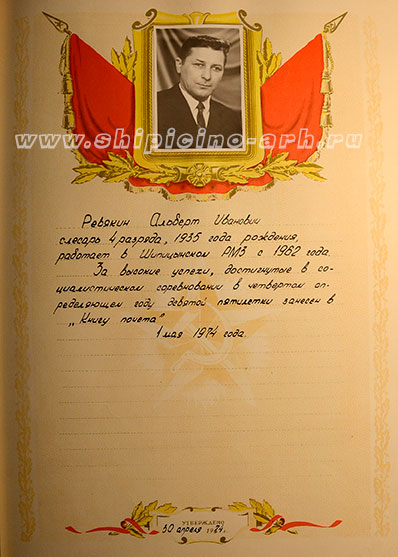 www.shipicino-arh.ru
Ревякин Альберт Иванович
слесарь 4 разряда, 1935 года рождения,
работает в Шипицынском РМЗ с 1962 года.
За высокие успехи, достигнутые в со-
циалистическом соревновании в четвертом оп-
ределяющем году девятой пятилетки занесен в
„Книгу почета"
1 мая 1974 года.
УТВЕРЖДЕНО
30 апреля 1974 г.